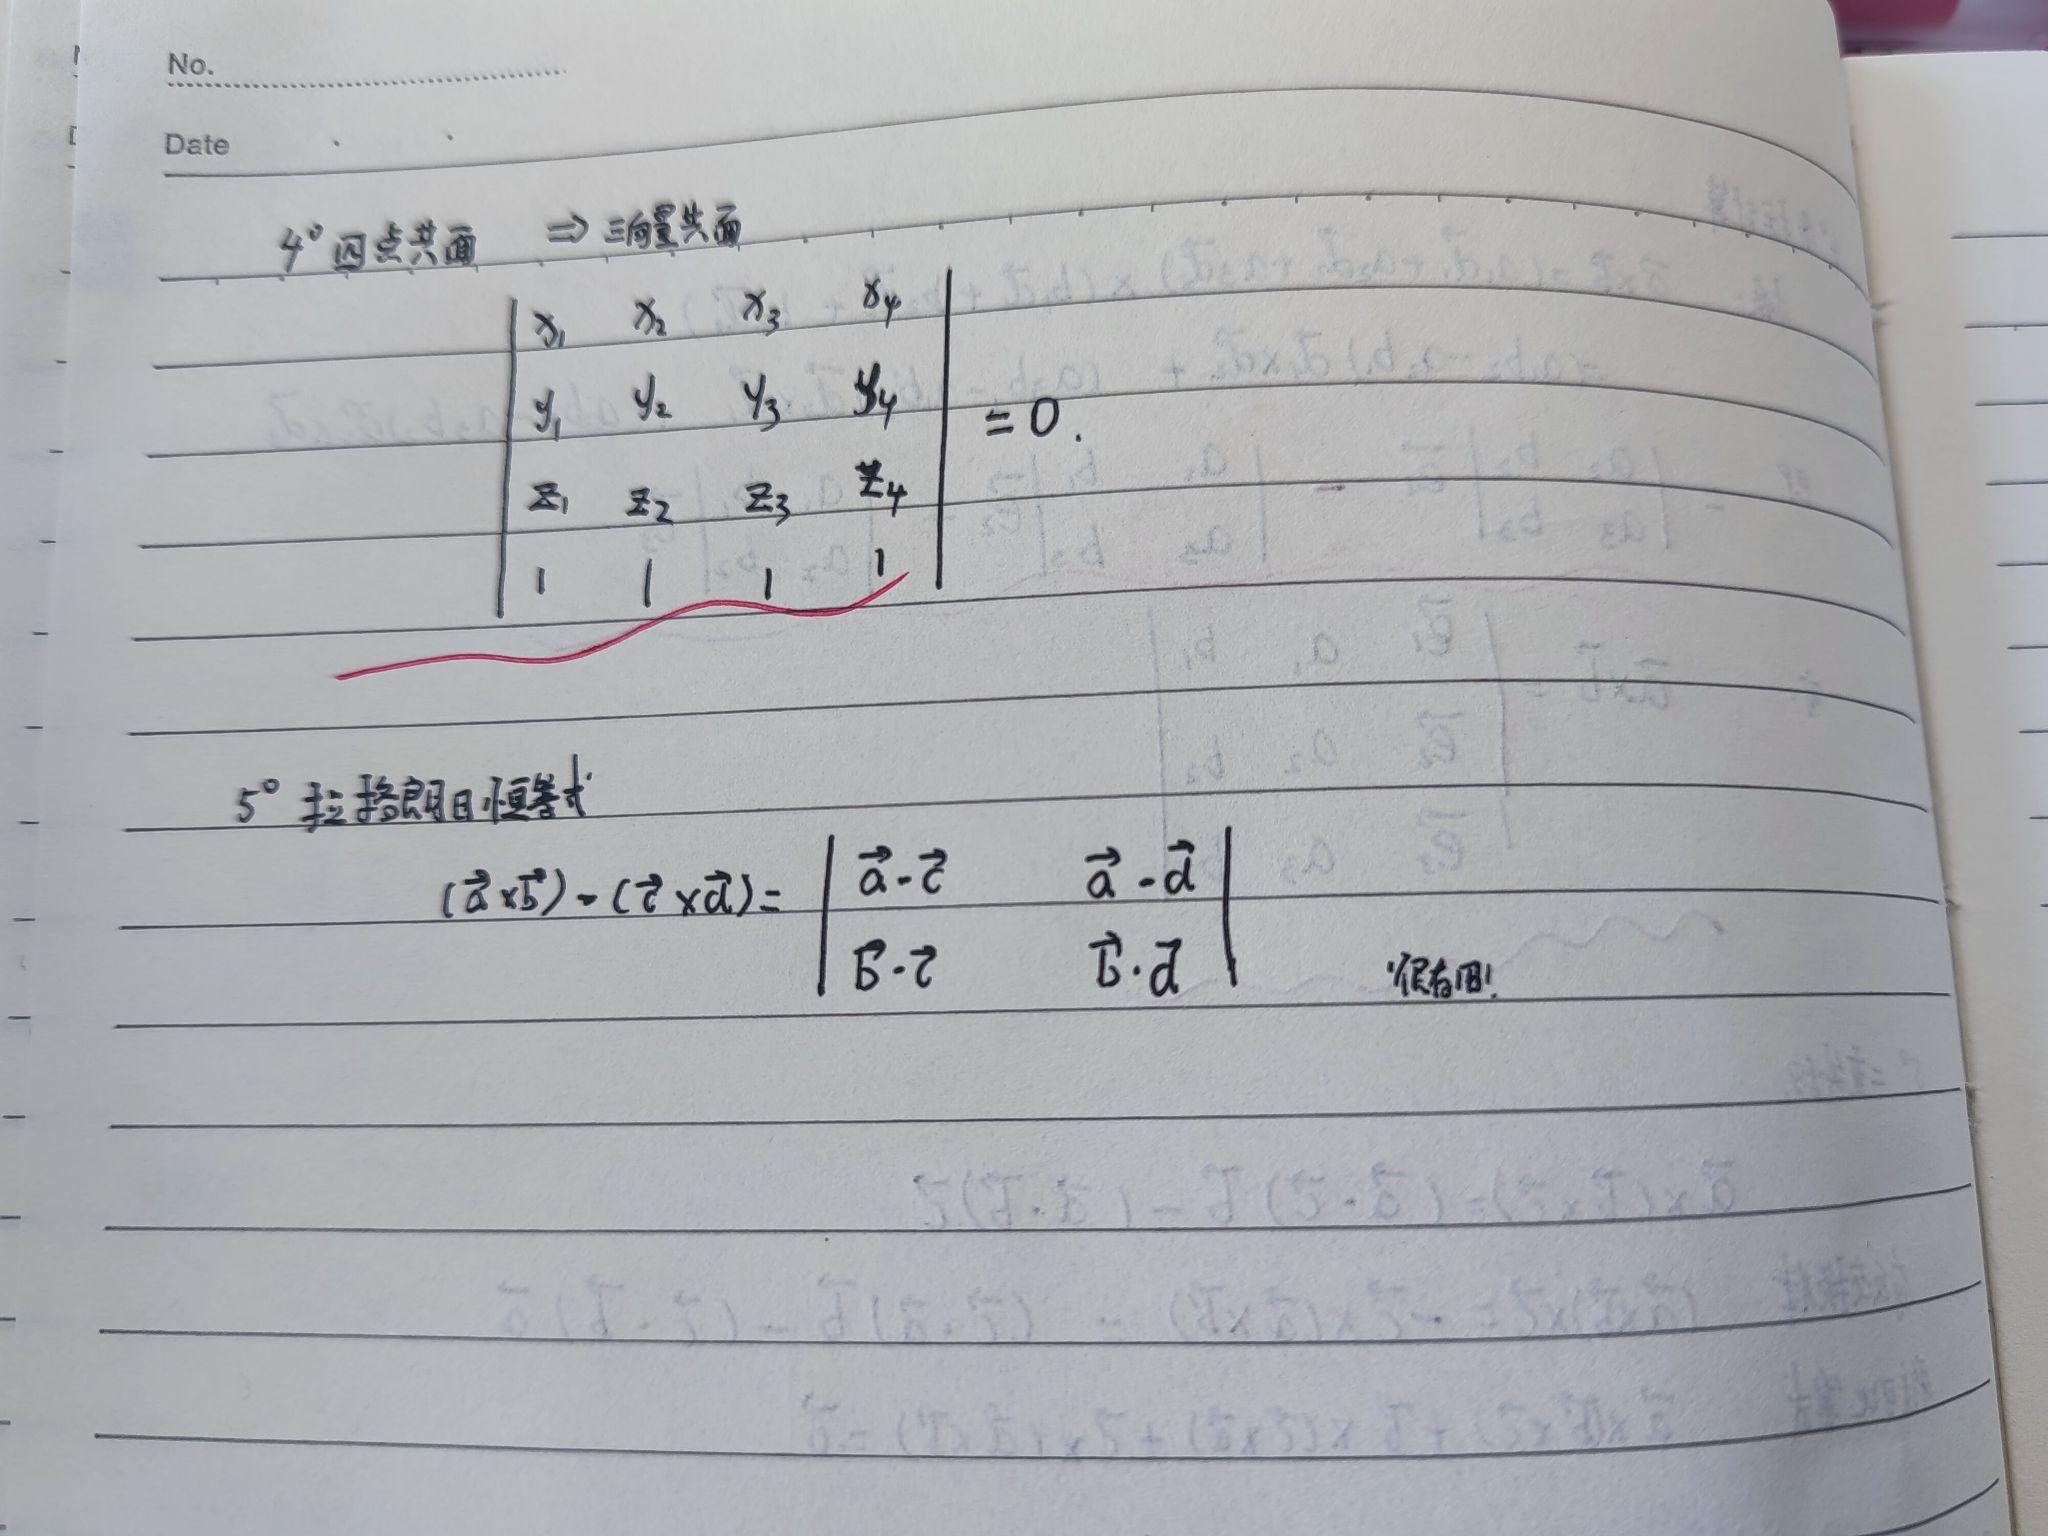 No.
Date
4° 四点共面 ⇒ 三向量共面
| x₁ x₂ x₃ x₄ |
| y₁ y₂ y₃ y₄ | = 0.
| z₁ z₂ z₃ z₄ |
| 1 1 1 1 |
5° 拉格朗日恒等式
(a⃗×b⃗)·(c⃗×d⃗) = | a⃗·c⃗ a⃗·d⃗ |
| b⃗·c⃗ b⃗·d⃗ | 很有用!